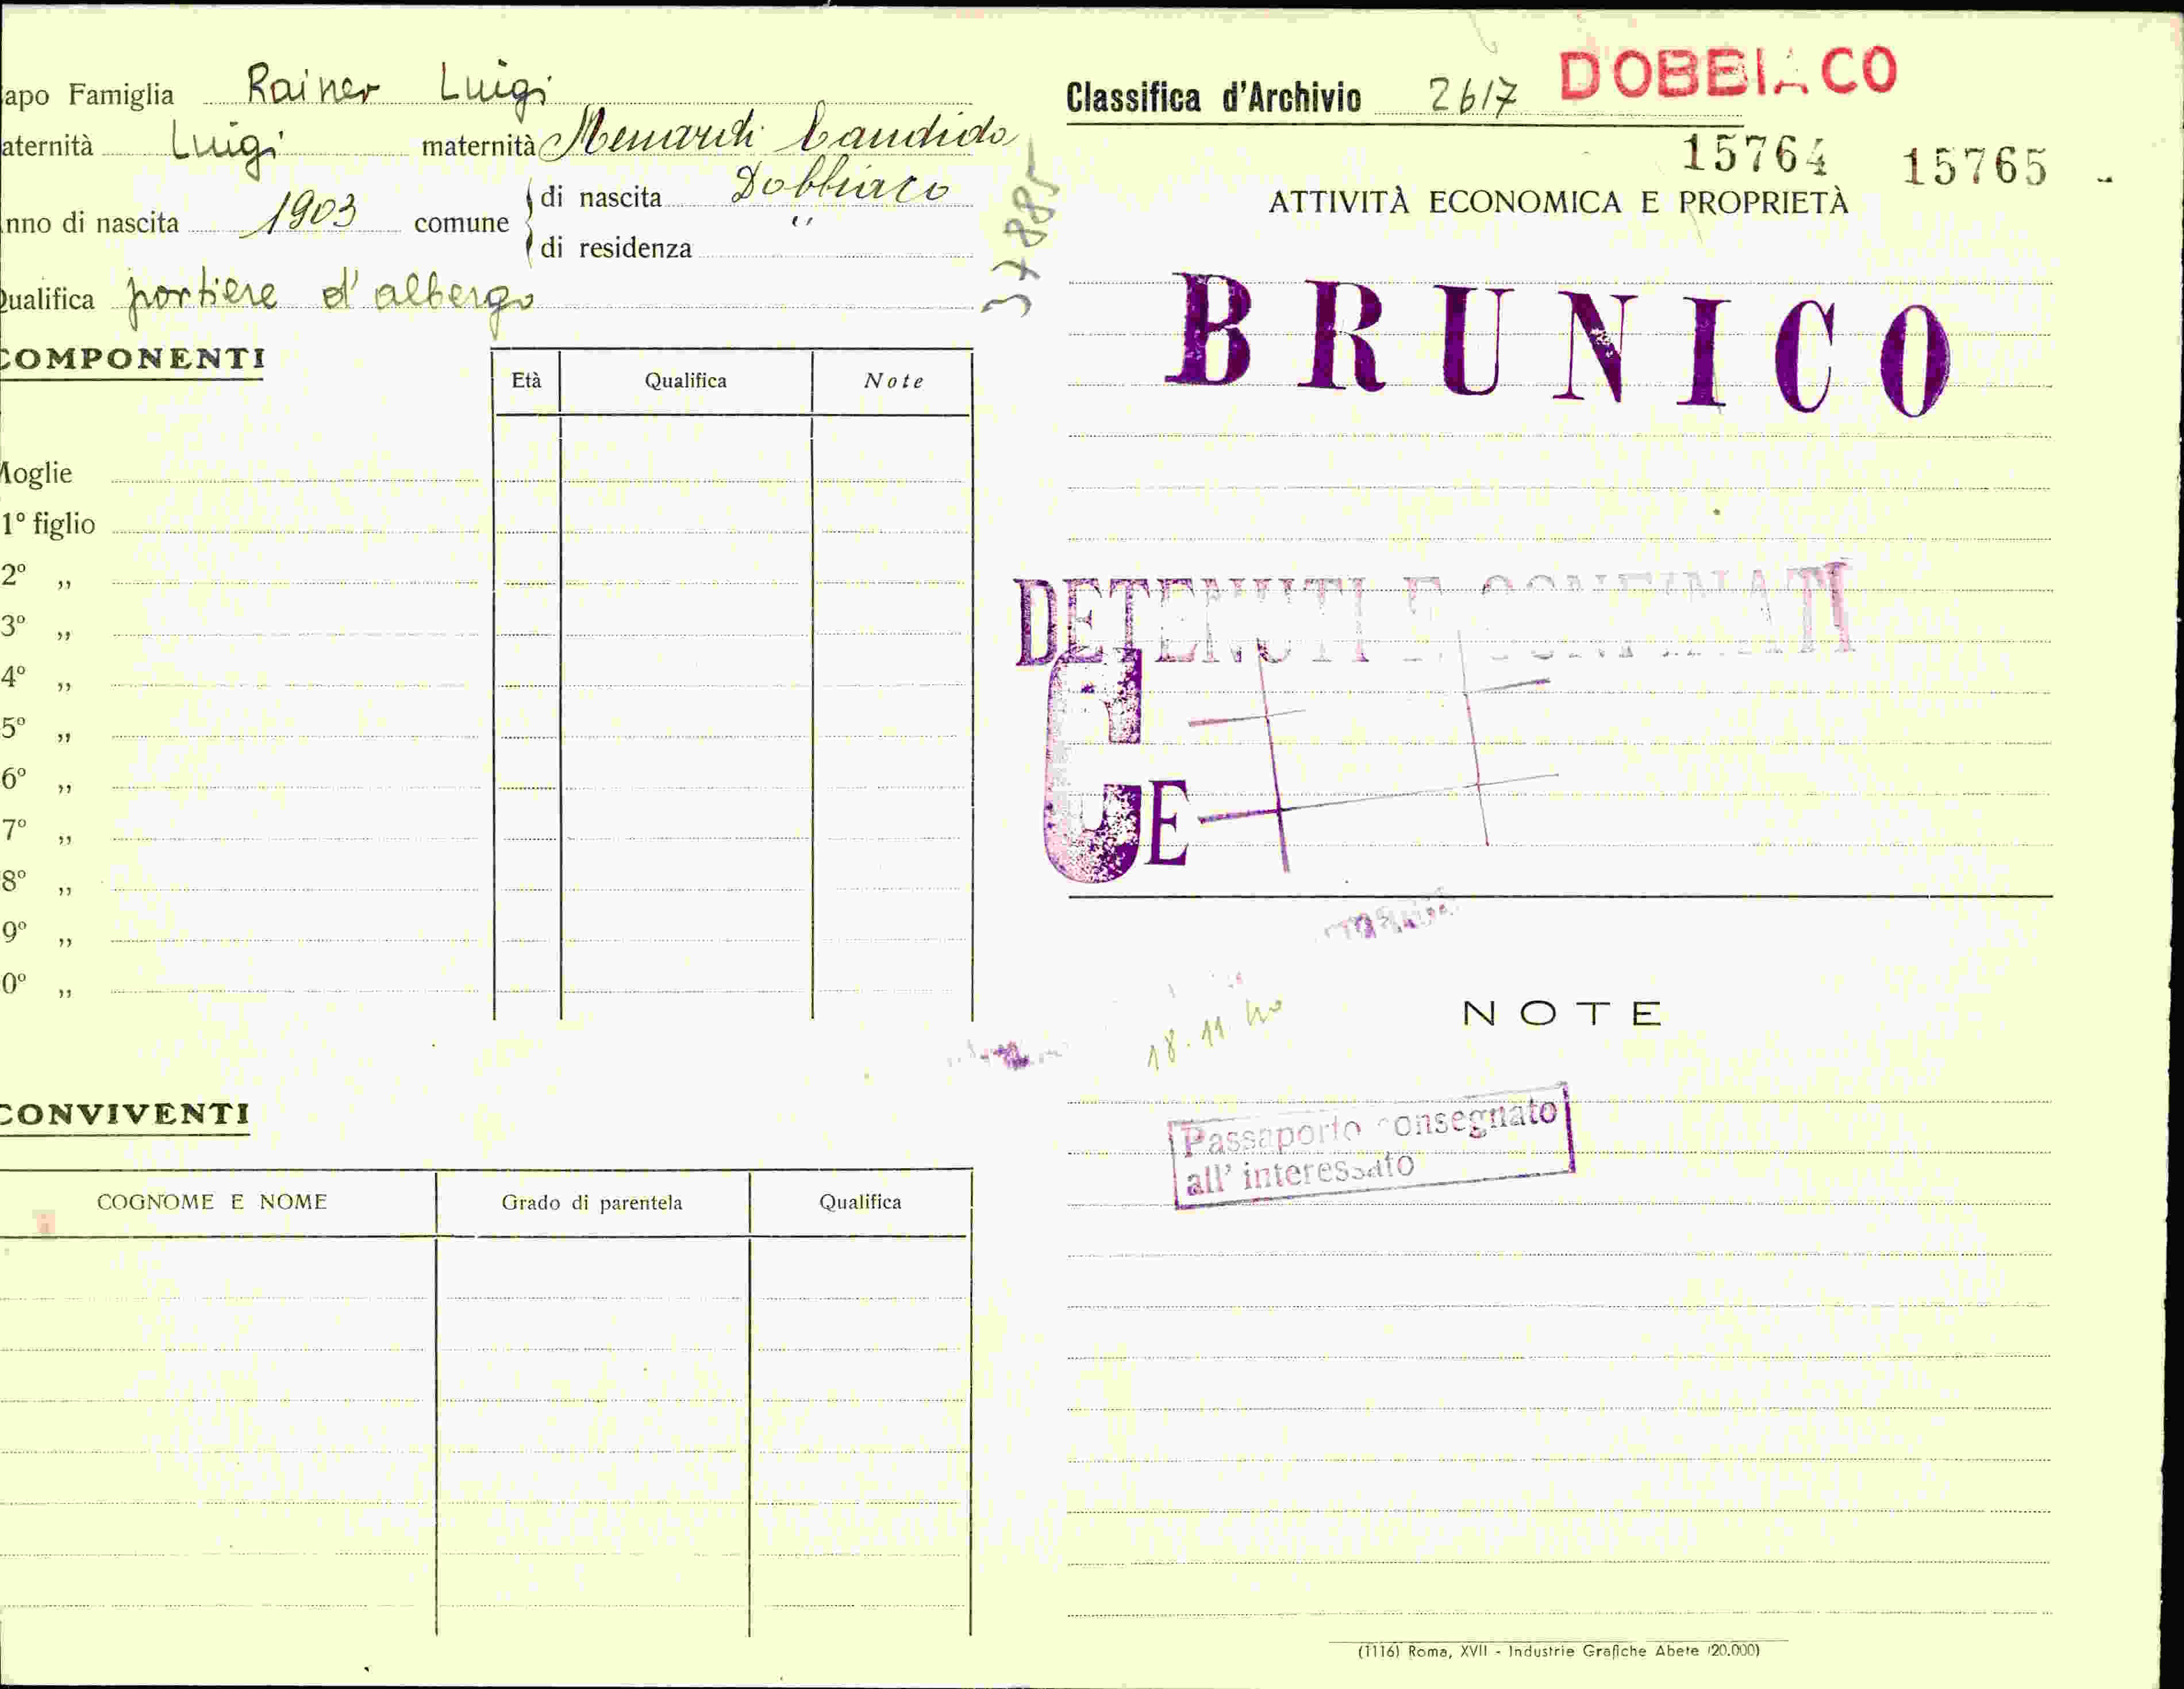 apo Famiglia Rainer Luigi
aternità Luigi maternità Menardi Candida
nno di nascita 1903 comune di nascita Dobbiaco
di residenza "
Qualifica portiere d'albergo
37885
COMPONENTI
Età Qualifica Note
Moglie
1º figlio
2º „
3º „
4º „
5º „
6º „
7º „
8º „
9º „
0º „
CONVIVENTI
COGNOME E NOME Grado di parentela Qualifica
Classifica d'Archivio 2617 DOBBIACO
15764 15765 -
ATTIVITÀ ECONOMICA E PROPRIETÀ
BRUNICO
DETENUTI E CONFINATI
E
18.11.40
NOTE
Passaporto consegnato
all' interessato
(1116) Roma, XVII - Industrie Grafiche Abete (20.000)